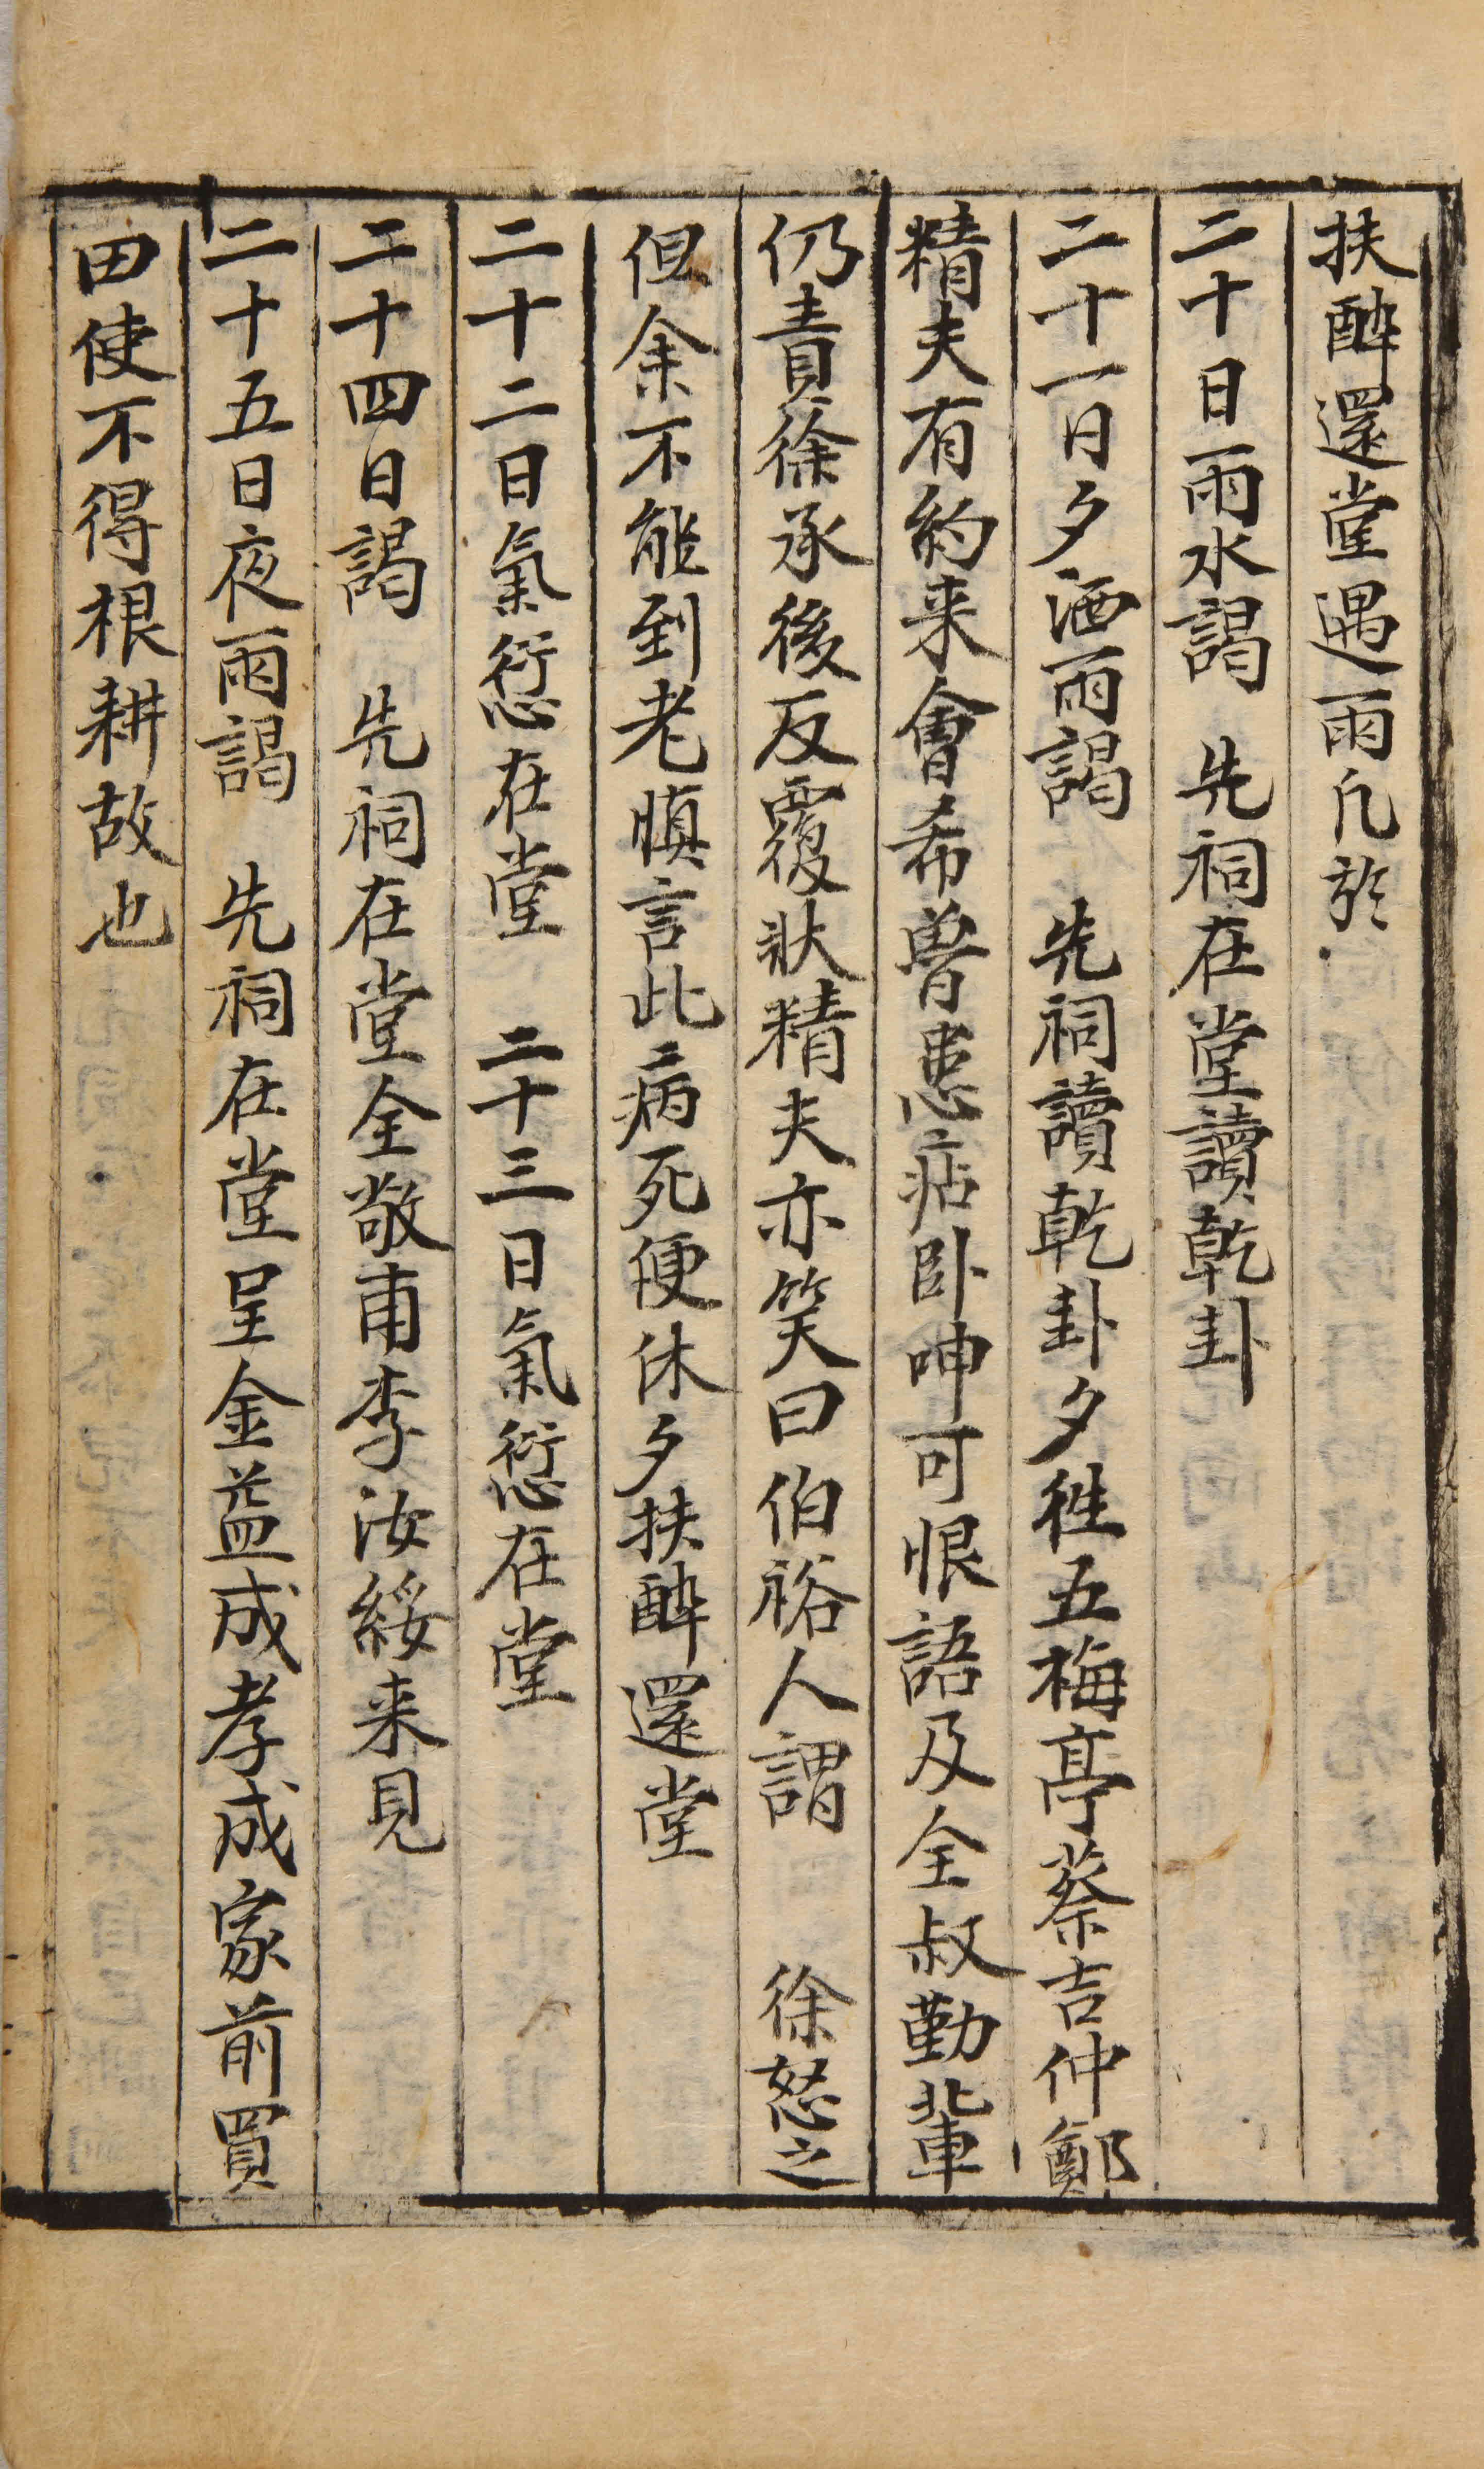 扶醉還堂遇雨凡於
二十日雨水謁　先祠在堂讀乾卦
二十一日夕洒雨謁　先祠讀乾卦夕徃五梅亭蔡吉仲鄭
精夫有約来會希曽患痁卧呻可恨語及全叔勤輩
仍責徐承後反覆狀精夫亦笑曰伯裕人謂　徐怒之
但余不能到老慎言此病死便休夕扶醉還堂
二十二日氣愆在堂　二十三日氣愆在堂
二十四日謁　先祠在堂全敬甫李汝綏来見
二十五日夜雨謁　先祠在堂呈金益成孝成家前買
田使不得根耕故也